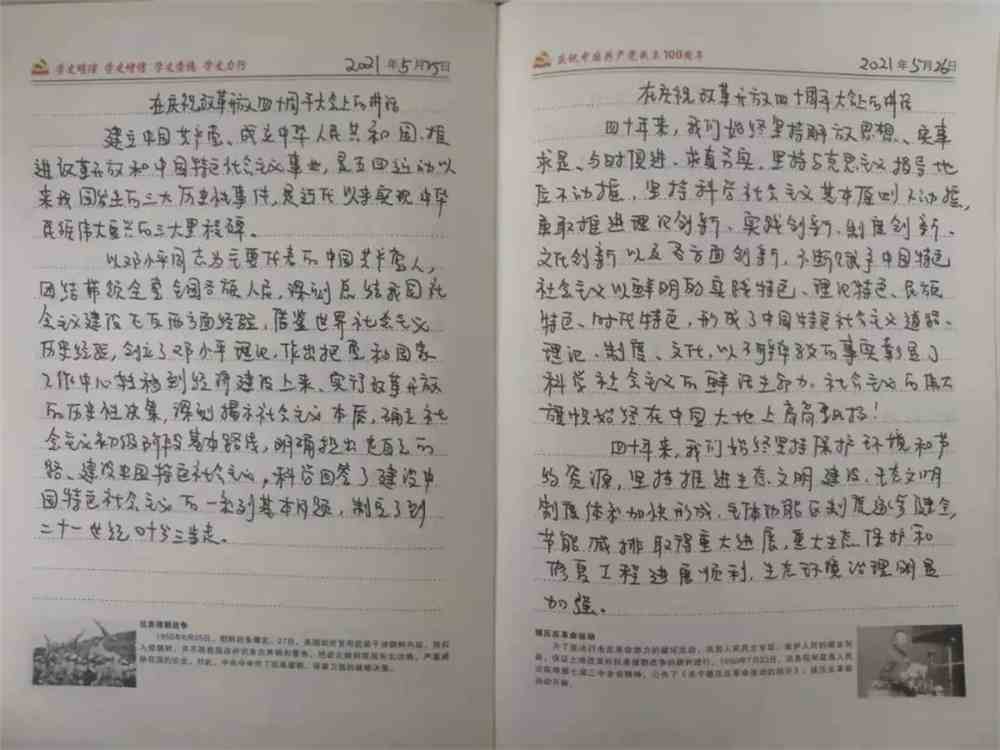 学史明理 学史增信 学史崇德 学史力行
2021年5月25日
在庆祝改革开放四十周年大会上的讲话
建立中国共产党、成立中华人民共和国、推
进改革开放和中国特色社会主义事业,是五四运动以
来我国发生的三大历史性事件,是近代以来实现中华
民族伟大复兴的三大里程碑。
以邓小平同志为主要代表的中国共产党人,
团结带领全党全国各族人民,深刻总结我国社
会主义建设正反两方面经验,借鉴世界社会主义
历史经验,创立了邓小平理论,作出把党和国家
工作中心转移到经济建设上来、实行改革开放
的历史性决策,深刻揭示社会主义本质,确立社
会主义初级阶段基本路线,明确提出走自己的
路、建设中国特色社会主义,科学回答了建设中
国特色社会主义的一系列基本问题,制定了到
二十一世纪叶分三步走。
抗美援朝战争
1950年6月25日,朝鲜战争爆发。27日,美国
庆祝中国共产党成立100周年
2021年5月26日
在庆祝改革开放四十周年大会上的讲话
四十年来,我们始终坚持解放思想、实事
求是、与时俱进、求真务实,坚持马克思主义指导地
位不动摇,坚持科学社会主义基本原则不动摇,
勇敢推进理论创新、实践创新、制度创新、
文化创新以及各方面创新,不断赋予中国特色
社会主义以鲜明的实践特色、理论特色、民族
特色、时代特色,形成了中国特色社会主义道路、
理论、制度、文化,以不可辩驳的事实彰显了
科学社会主义的鲜活生命力,社会主义的伟大
旗帜始终在中国大地上高高飘扬!
四十年来,我们始终坚持保护环境和节
约资源,坚持推进生态文明建设,生态文明
制度体系加快形成,主体功能区制度逐步健全,
节能减排取得重大进展,重大生态保护和
修复工程进展顺利,生态环境治理明显
加强。
镇压反革命运动